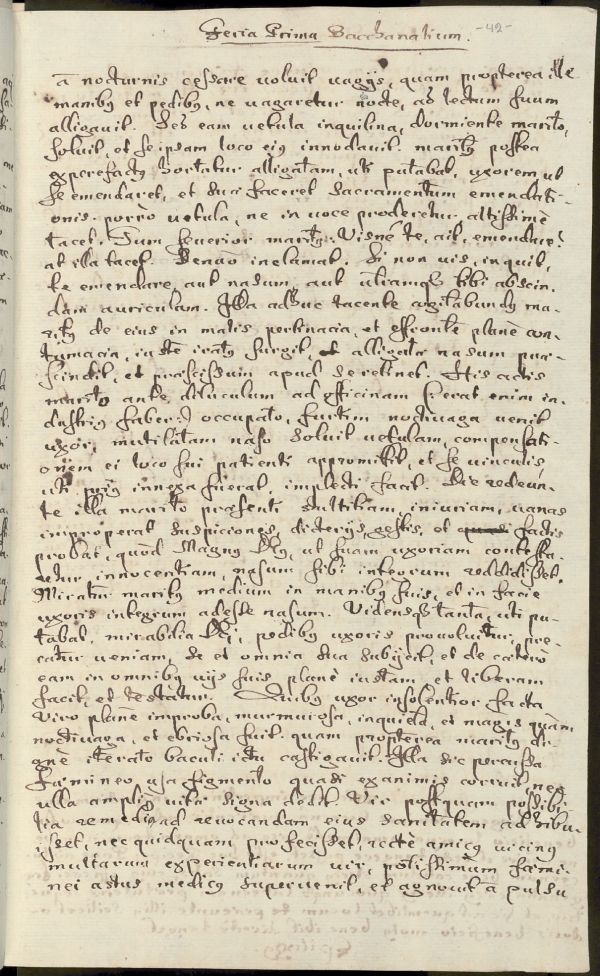 Feria Prima Bacchanalium. -42-
â nocturnis cessare voluit vagijs, quam propterea ille
manibꝯ et pedibꝯ, ne vagaretur nocte, ad lectum suum
alligavit. Sed eam vetula inquilina, dormiente marito,
soluit, et se ipsam loco eiꝯ innodavit. maritꝯ postea
experefactꝯ hortatur alligatam, uti putabat, uxorem ut
se emendaret, et sua faceret Sacramentum emendati-
onis. porro vetula, ne in voce proderetur altissimè
tacet. Tum severior maritꝯ: Visne te, ait, emendare?
at illa tacet. Denuò inclamat. Si non vis, inquit,
te emendare, aut nasum, aut utramqꝫ tibi abscin-
dam auriculam. Illa adhuc tacente cogitabundꝯ ma-
ritꝯ de eius in malis pertinacia, et effronte planè con-
tumacia, iuste iratꝯ surgit, et alligatæ nasum præ-
scindit, et præscissum apud se retinet. His actis
marito ante diluculum ad officinam (: erat enim in-
dustriꝯ faber :) occupato, furtim noctivaga venit
uxor, mutilatam naso soluit vetulam, compensati-
onem ei loco sui patienti appromittit, et se vinculis
uti priꝯ innexa fuerat, implecti facit. Sic redeun-
te illa marito præsenti stultitiam, iniuriam, vanas
improperat suspiciones, dicterijs, gestis, et factis
probat, quòd Magnꝯ Dꝯ, ut suam uxoriam contesta-
retur innocentiam, nasum sibi integrum reddidisset.
Miratur maritꝯ medium in manibꝯ suis, et in facie
uxoris integrum adesse nasum. Vidensqꝫ tanta, uti pu-
tabat, mirabilia Dei, pedibꝯ uxoris provoluitur, pre-
catur veniam, se et omnia sua subijcit, et de cætero
eam in omnibꝯ vijs suis planè iustam et liberam
facit, et testatur. Quibꝯ uxor insolentior facta
viro planè improba, murmurosa, inquieta, et magis quàm
noctivaga, et ebriosa fuit. quam propterea maritꝯ di-
gnè iterato baculi ictu castigavit. Illa sic percussa
fæmineo usa figmento quasi exanimis corruit, nec
ulla ampliꝯ vitæ signa dedit. Vir postquam possibi-
lia remedia ad revocandam eius sanitatem adhibu-
isset, nec quidquam profecisset, rectè amicꝯ vicinꝯ
multarum experientiarum vir, potissimum fæmi-
nei astus medicꝯ supervenit, et agnovit â pulsu